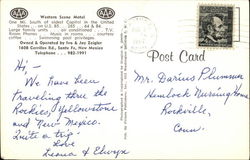 Western Scene Motel
One Mi. South of oldest Capital in the United
States . . . on U.S. 85 . . . 285 . . . 64 & 84
Large family units . . . air conditioned . . . T.V.
Room Phones . . . Music in rooms . . . morning
coffee . . . Swimming pool privileges
Owned & Operated by Iva & Jay Zeigler
1608 Cerrillos Rd., Santa Fe, New Mexico
Telephone . . . 982-1991
Hi, -
We have been
Traveling thru the
Rockies, Yellowstone
and New Mexico.
Quite a trip
Love
Leona &
Mr. Darius Plumson
Hemlock Nursing Home
Rockville,
Conn.
Post Card